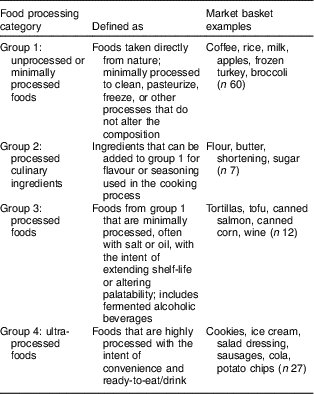 Food processing category
Defined as
Market basket examples
Group 1: unprocessed or minimally processed foods
Foods taken directly from nature; minimally processed to clean, pasteurize, freeze, or other processes that do not alter the composition
Coffee, rice, milk, apples, frozen turkey, broccoli (n 60)
Group 2: processed culinary ingredients
Ingredients that can be added to group 1 for flavour or seasoning used in the cooking process
Flour, butter, shortening, sugar (n 7)
Group 3: processed foods
Foods from group 1 that are minimally processed, often with salt or oil, with the intent of extending shelf-life or altering palatability; includes fermented alcoholic beverages
Tortillas, tofu, canned salmon, canned corn, wine (n 12)
Group 4: ultra-processed foods
Foods that are highly processed with the intent of convenience and ready-to-eat/drink
Cookies, ice cream, salad dressing, sausages, cola, potato chips (n 27)